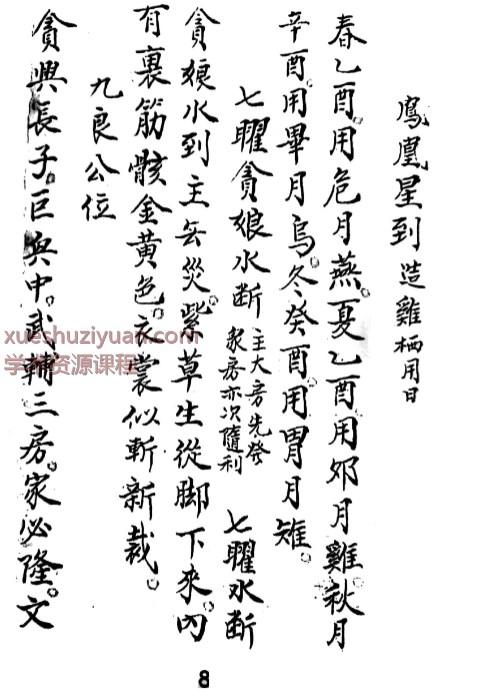 鳳凰星到 造雞栖用日
春乙酉。用危月燕。夏乙酉用昴月雞。秋月
辛酉。用畢月烏。冬癸酉。用胃月雉。
七曜貪娘水斷 主大房先發
衆房亦次隨利 七曜水斷
貪娘水到主無災。紫草生從脚下來。內
有裏筋骸金黃色。衣裳似斬新裁。
九良公位
貪與長子。巨與中。武輔三房。家必隆。文
8
xueshuziyuan.com
学术资源课程